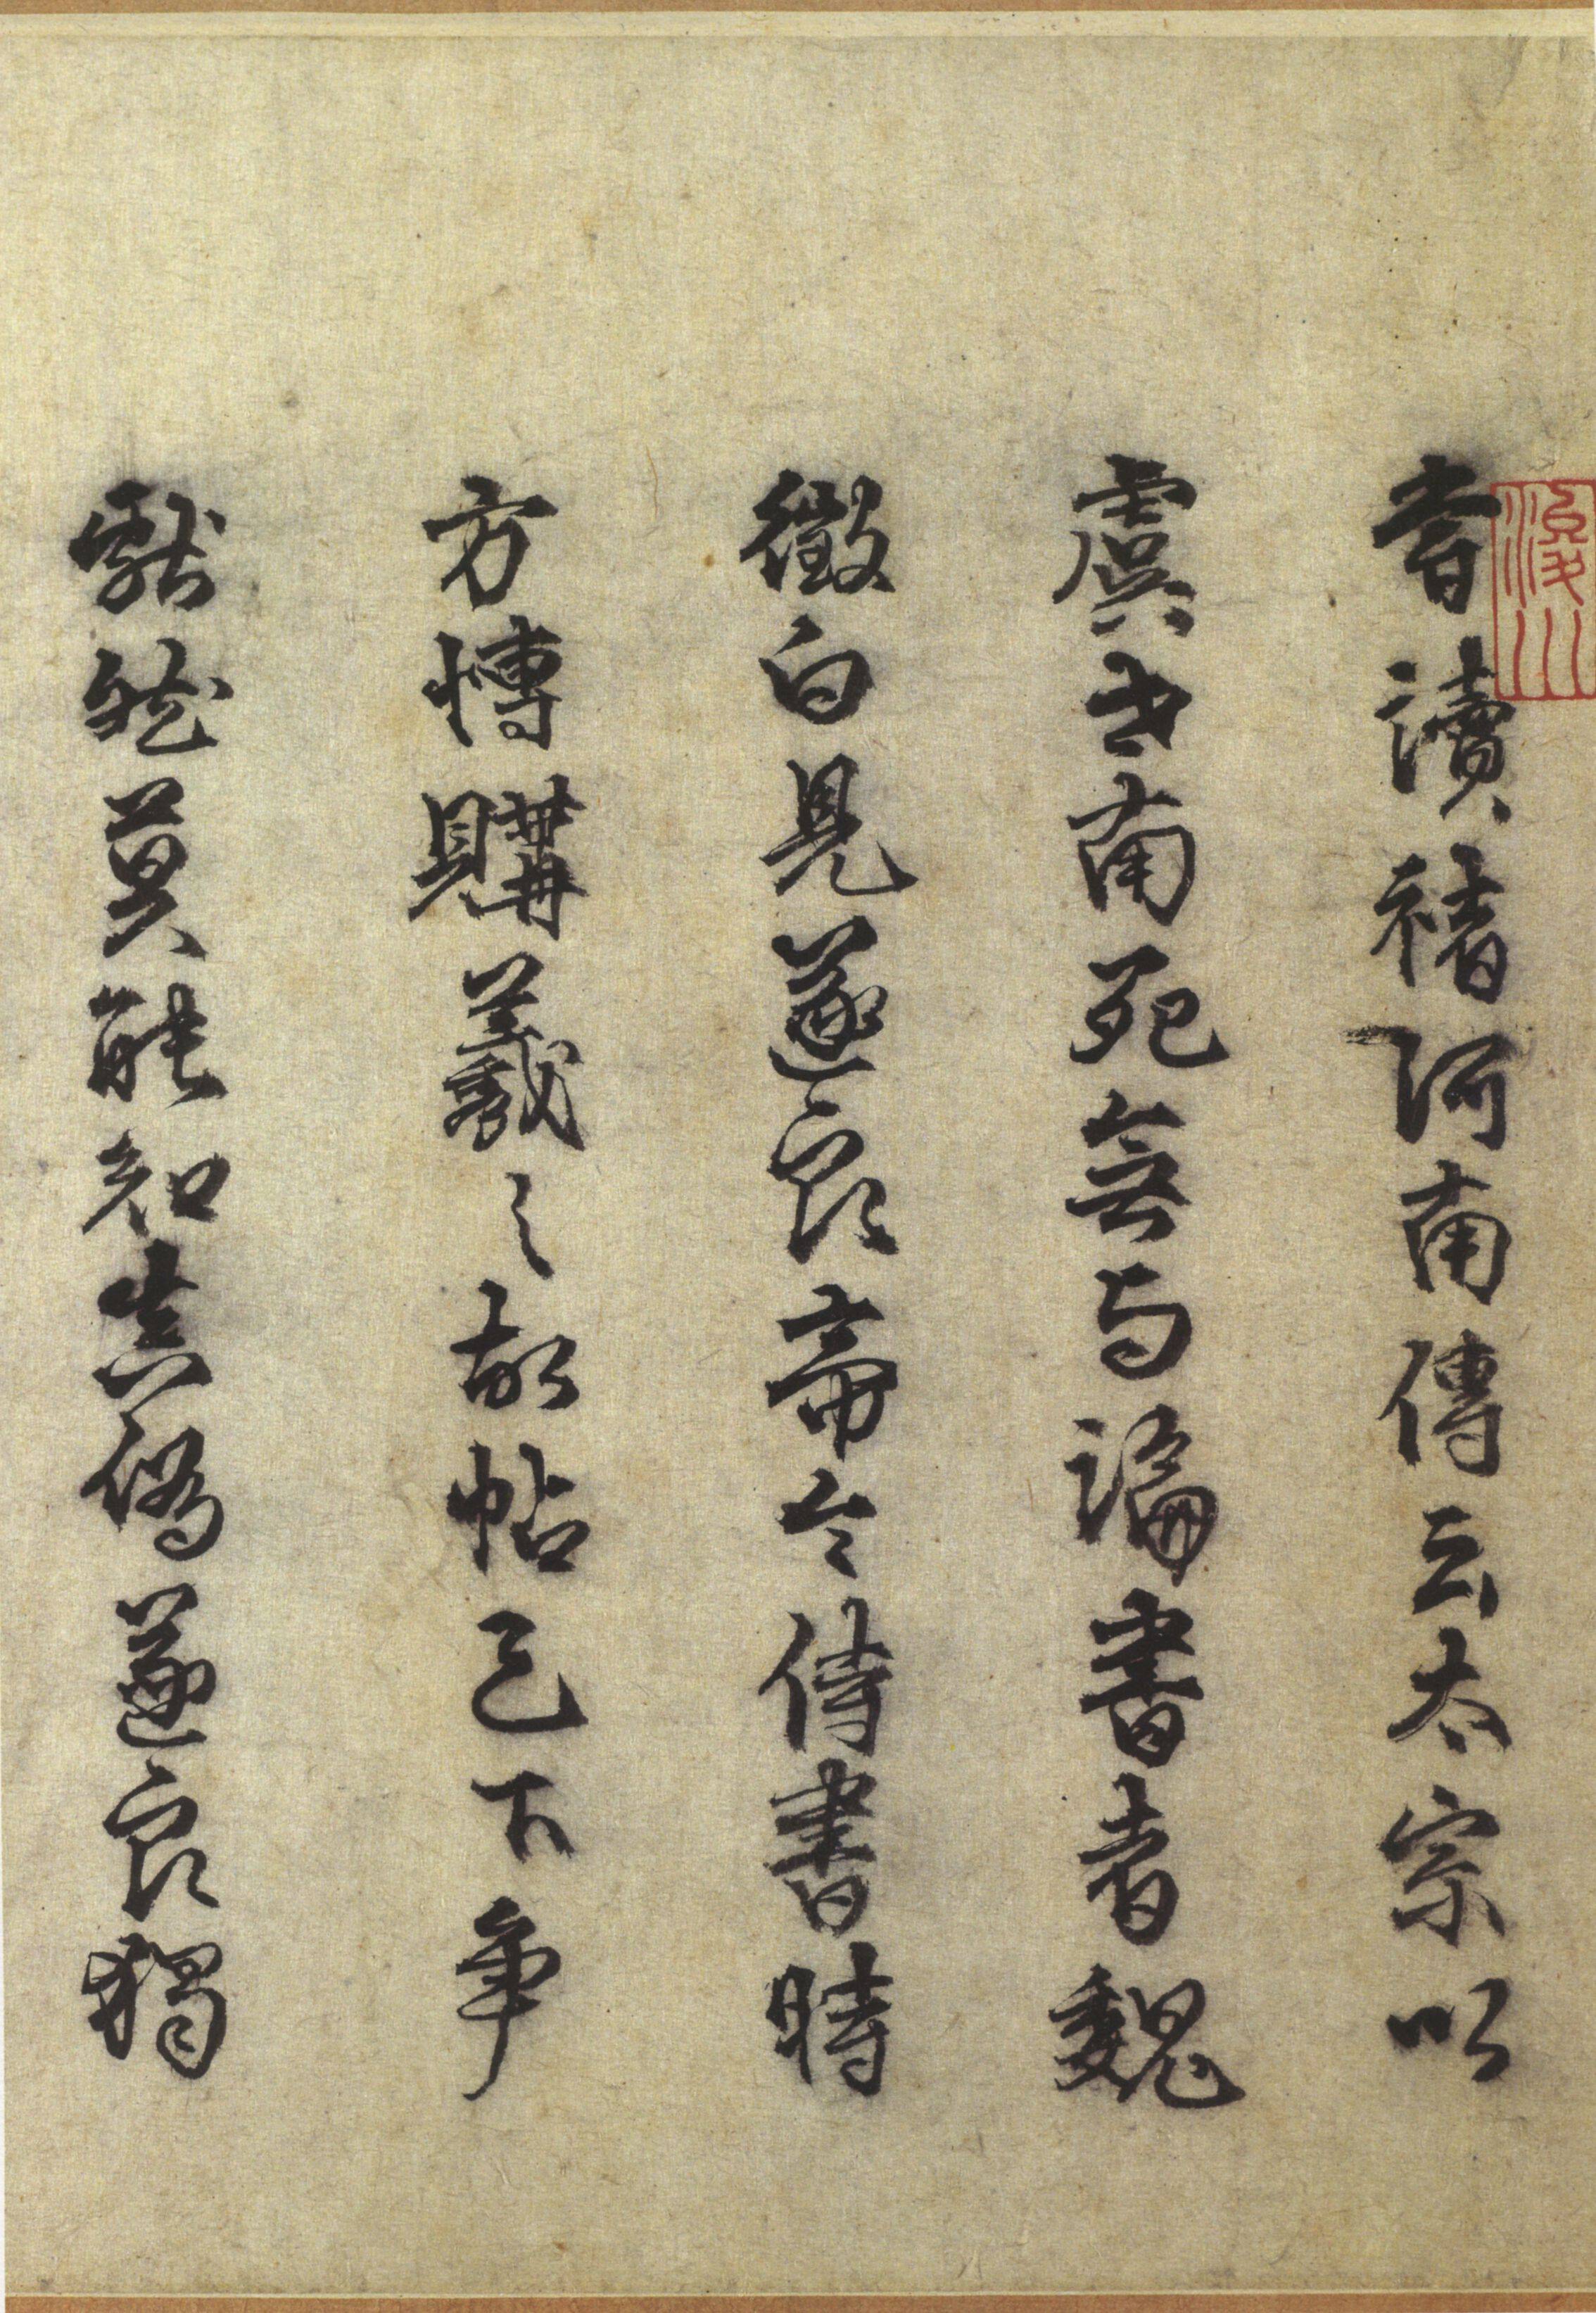 昔讀褚河南傳云太宗以
虞世南死無與論書者魏
徵白見遂良帝令侍書時
方博購羲之故帖天下爭
獻然莫能知真偽遂良獨